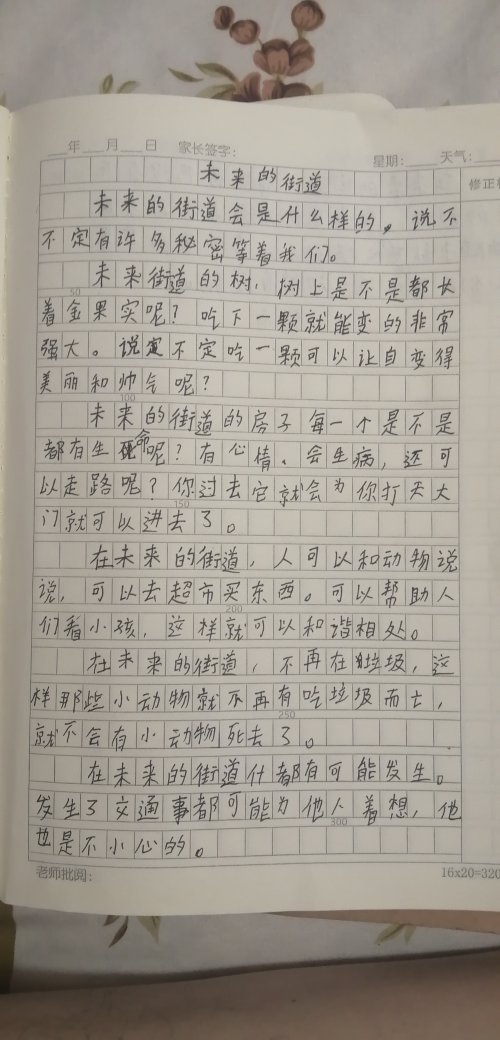 ___年___月___日 家长签字：
星期：____ 天气：
修正栏
未来的街道
未来的街道会是什么样的。说不
不定有许多秘密等着我们。
未来街道的树，树上是不是都长
50
着金果实呢？吃下一颗就能变的非常
强大。说定不定吃一颗可以让自变得
美丽和帅气呢？
100
未来的街道的房子每一个是不是
都有生命呢？有心情、会生病，还可
以走路呢？你过去它就会为你打天大
150
门就可以进去了。
在未来的街道，人可以和动物说
说，可以去超市买东西。可以帮助人
200
们看小孩，这样就可以和谐相处。
在未来的街道，不再在垃圾，这
样那些小动物就不再有吃垃圾而亡，
250
就不会有小动物死去了。
在未来的街道什都有可能发生。
发生了交通事都可能为他人着想，他
300
也是不小心的。
老师批阅：
16x20=320